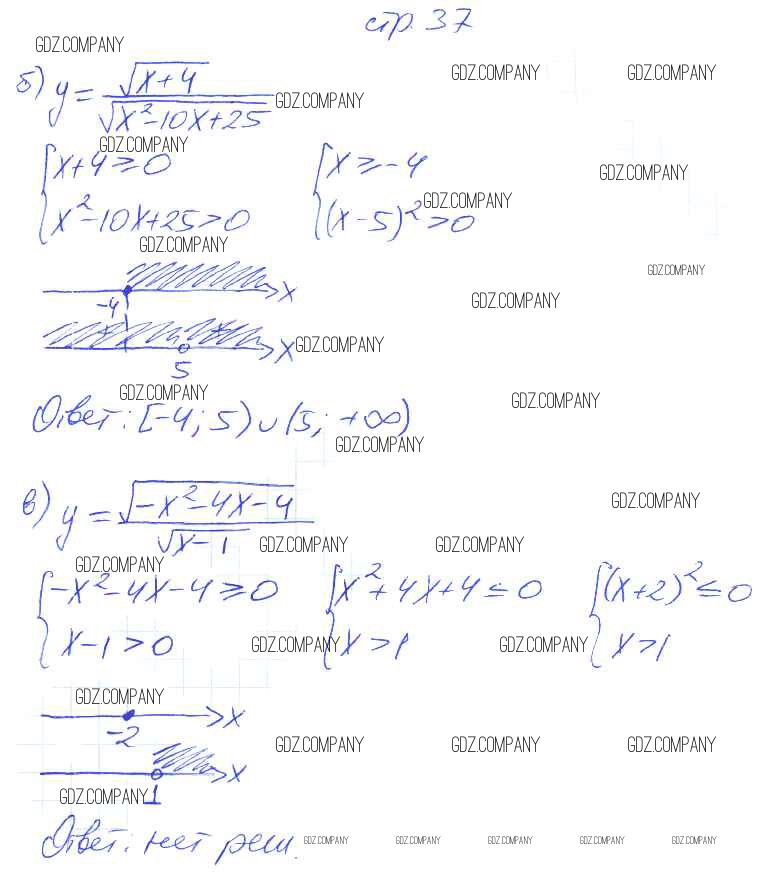 стр. 37
GDZ.COMPANY
GDZ.COMPANY GDZ.COMPANY
б) y = √(x+4) / √(x²-10x+25) GDZ.COMPANY
GDZ.COMPANY
{ x+4≥0 { x≥-4 GDZ.COMPANY
x²-10x+25>0 (x-5)²>0 GDZ.COMPANY
GDZ.COMPANY
GDZ.COMPANY
-4 x GDZ.COMPANY
5 x GDZ.COMPANY
GDZ.COMPANY GDZ.COMPANY
Ответ: [-4; 5) ∪ (5; +∞)
GDZ.COMPANY
в) y = √(-x²-4x-4) / √(x-1) GDZ.COMPANY
GDZ.COMPANY GDZ.COMPANY
GDZ.COMPANY
{ -x²-4x-4≥0 { x²+4x+4≤0 { (x+2)²≤0
x-1>0 GDZ.COMPANY x>1 GDZ.COMPANY x>1
GDZ.COMPANY
-2 x
GDZ.COMPANY GDZ.COMPANY GDZ.COMPANY
x
GDZ.COMPANY 1
Ответ: нет реш. GDZ.COMPANY GDZ.COMPANY GDZ.COMPANY GDZ.COMPANY GDZ.COMPANY